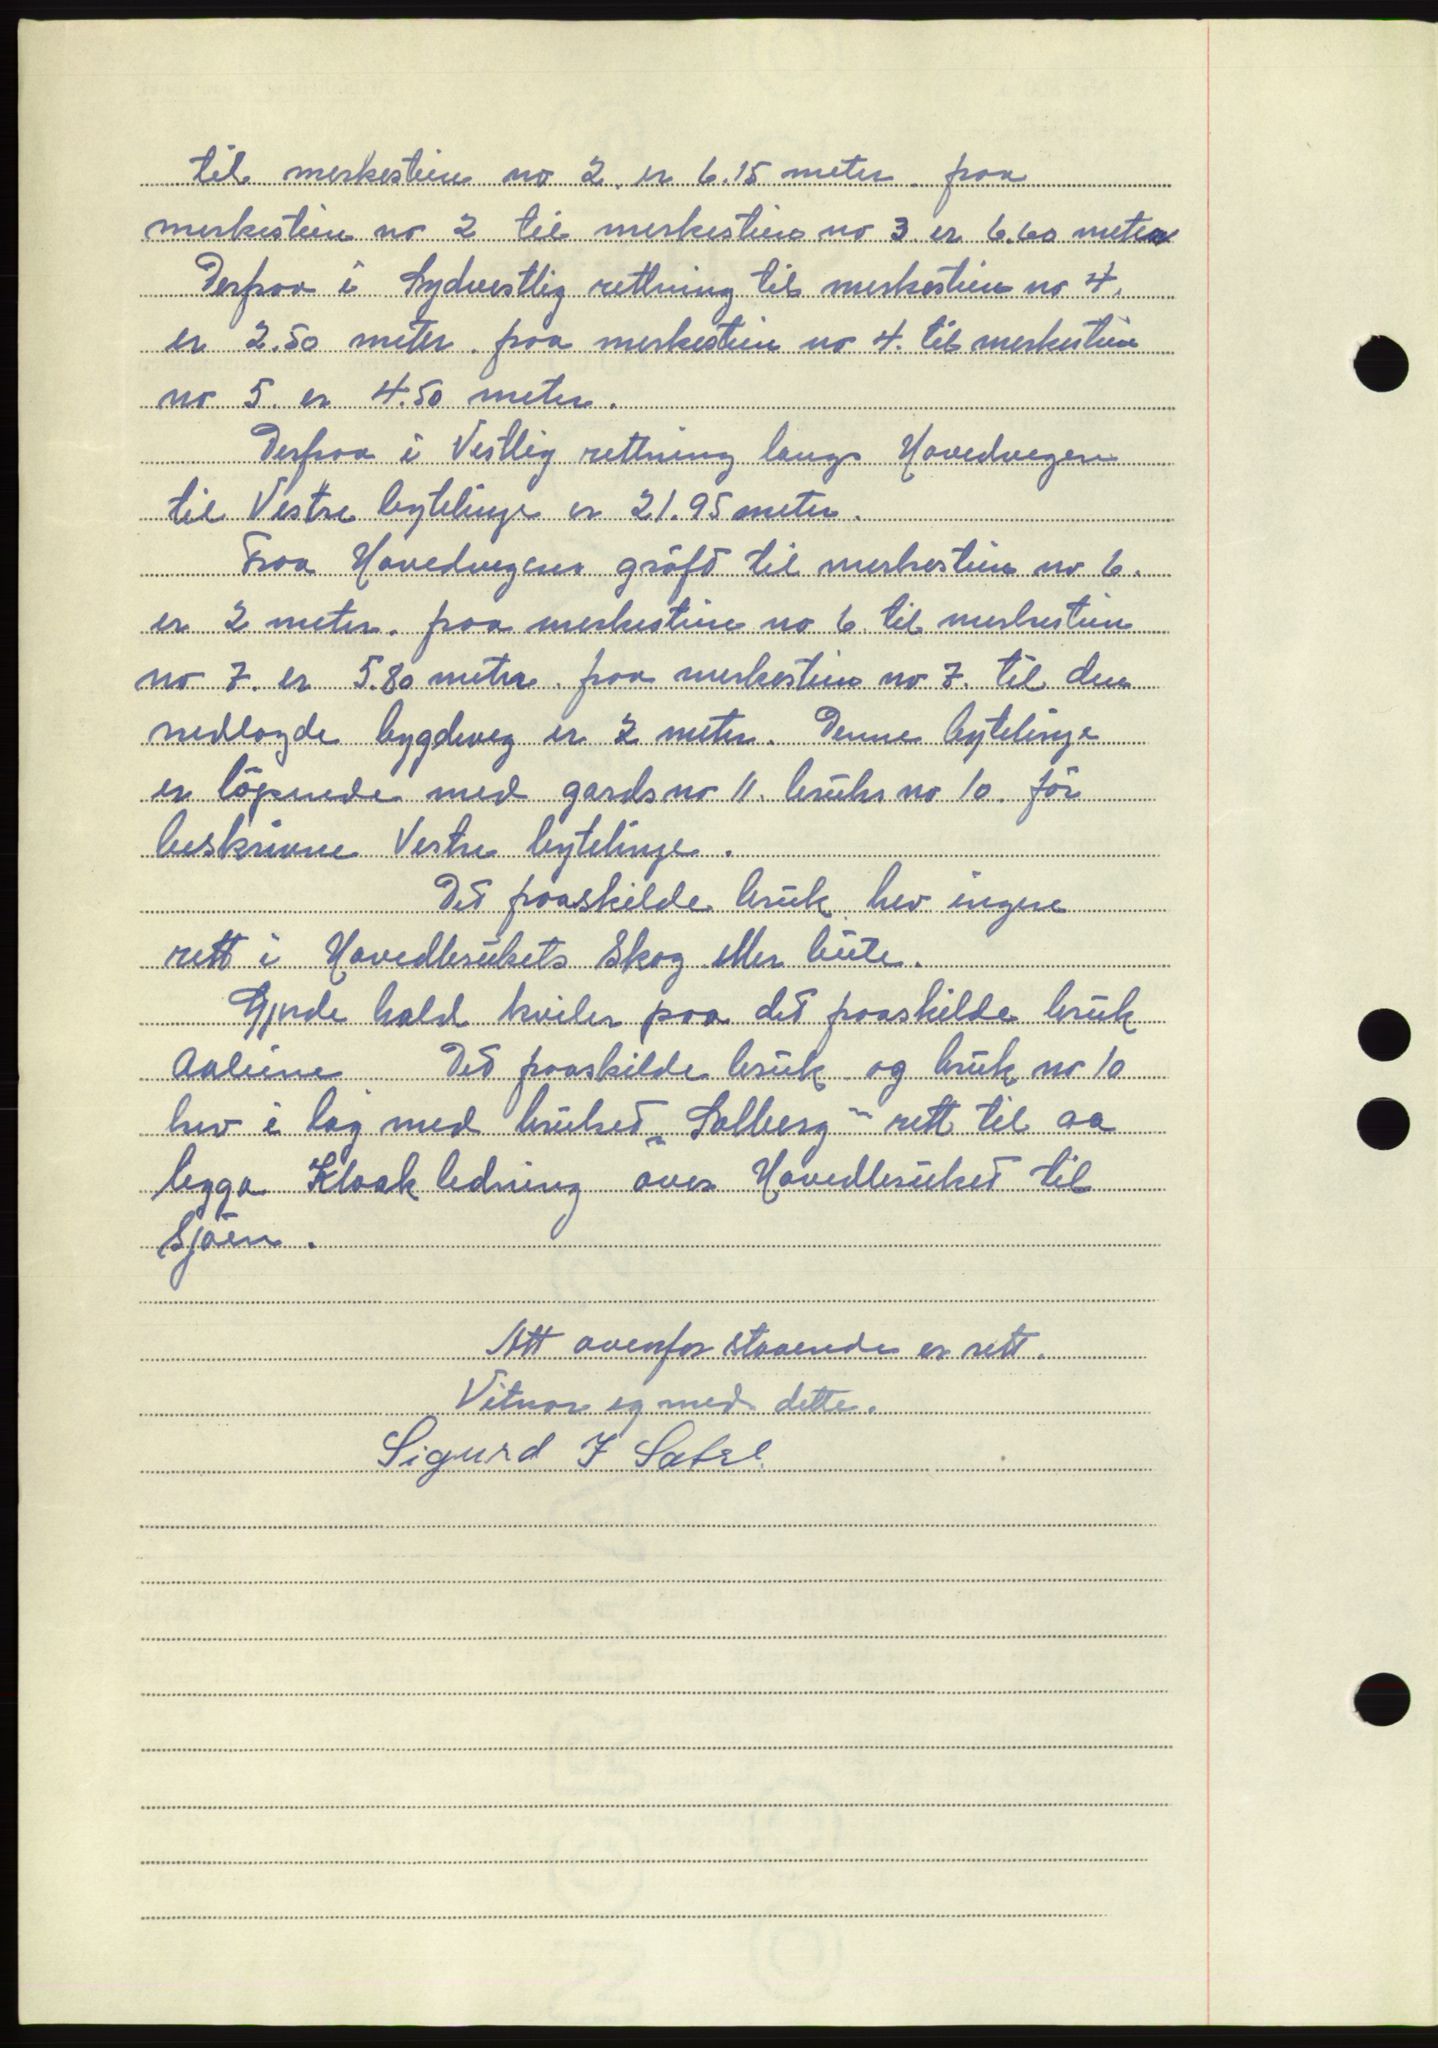 til merkestein no 2. er 6.15 meter. fraa
merkestein no 2 til merkestein no 3. er 6.60 meter
Derfraa i Sydvestlig rettning til merkestein no 4.
er 2.50 meter. fraa merkestein no 4. til merkestein
no 5. er 4.50 meter.
Derfraa i Vestlig rettning langs Hovedvegen
til Vestre bytelinje er 21.95 meter.
Fraa Hovedvegens gröft til merkestein no 6.
er 2 meter. fraa merkestein no 6. til merkestein
no 7. er 5.80 meter. fraa merkestein no 7. til den
nedlagde bygdeveg er 2 meter. Denne bytelinje
er löpende med gards no 11. bruks no 10. för
beskrivne Vestre bytelinje.
Det fraaskilde bruk hev ingen
rett i Hovedbrukets Skog eller beite.
Gjerde hald kviler paa det fraaskilde bruk
aaleine Det fraaskilde bruk og bruk no 10
hev i lag med bruket „Solberg" rett til aa
legga Kloak ledning over Hovedbruket til
Sjöen.
Att ovenfor staaende er rett.
Vitnar eg med dette.
Sigurd J